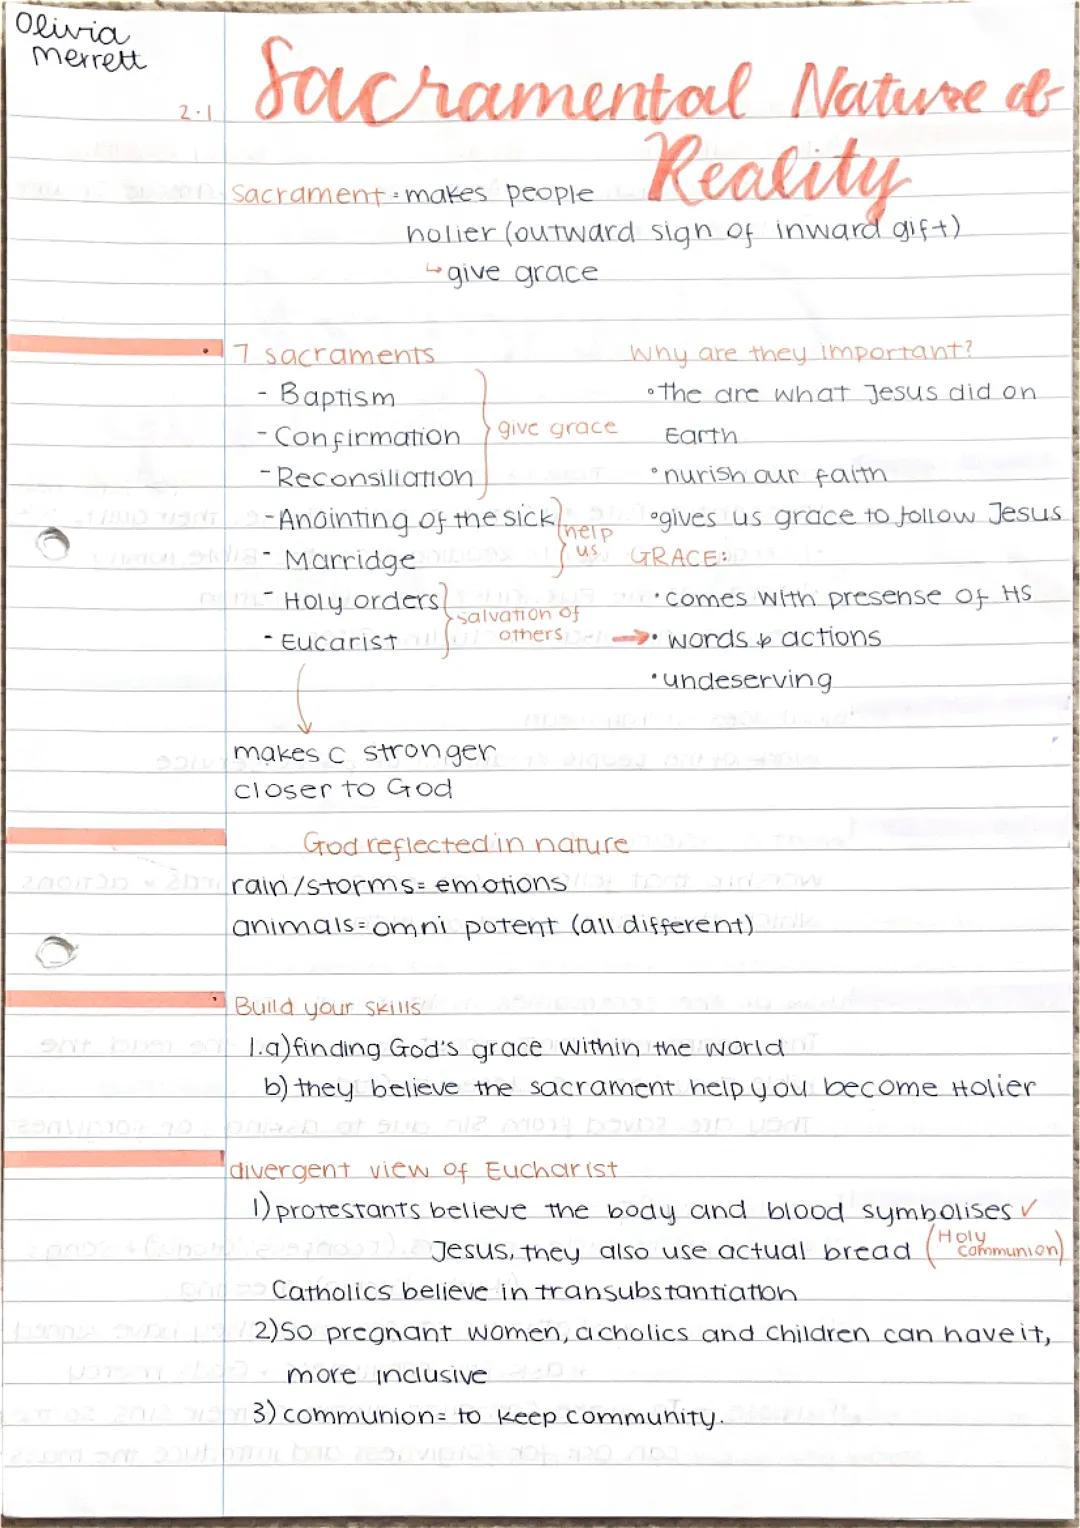 Olivia
Merrett
2.1
Sacramental Nature of
Reality
Sacrament = makes people
holier (outward sign of inward gift)
↳ give grace
7 sacraments
- Baptism
- Confirmation
- Reconsiliation
give grace
- Anointing of the sick
- Marridge
help
us
- Holy orders
- Eucarist
salvation of
others
makes C stronger
closer to God
Why are they important?
• The are what Jesus did on
Earth
• nurish our faith
• gives us grace to follow Jesus
GRACE:
• comes with presense of HS
→ • words & actions
• undeserving
God reflected in nature
rain/storms = emotions
animals = omni potent (all different)
Build your skills
1.a) finding God's grace within the world
b) they believe the sacrament help you become Holier
divergent view of Eucharist
1) protestants believe the body and blood symbolises ✓
Jesus, they also use actual bread (Holy Communion)
Catholics believe in transubstantiation
2) So pregnant women, acholics and children can have it,
more inclusive
3) communion = to keep community.